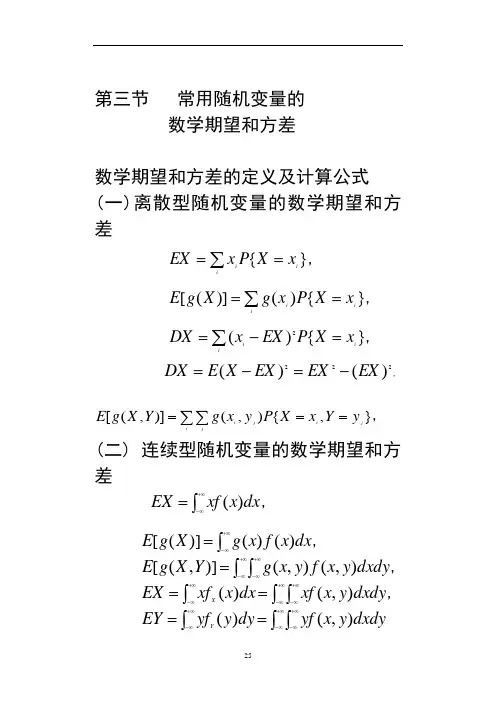 第三节 常用随机变量的
数学期望和方差
数学期望和方差的定义及计算公式
(一)离散型随机变量的数学期望和方
差
EX = ∑_i x_i P{X = x_i},
E[g(X)] = ∑_i g(x_i)P{X = x_i},
DX = ∑_i (x_i − EX)²P{X = x_i},
DX = E(X − EX)² = EX² − (EX)².
E[g(X,Y)] = ∑_i ∑_j g(x_i, y_j)P{X = x_i, Y = y_j},
(二) 连续型随机变量的数学期望和方
差
EX = ∫_{−∞}^{+∞} xf(x)dx,
E[g(X)] = ∫_{−∞}^{+∞} g(x)f(x)dx,
E[g(X,Y)] = ∫_{−∞}^{+∞}∫_{−∞}^{+∞} g(x,y)f(x,y)dxdy,
EX = ∫_{−∞}^{+∞} xf_X(x)dx = ∫_{−∞}^{+∞}∫_{−∞}^{+∞} xf(x,y)dxdy,
EY = ∫_{−∞}^{+∞} yf_Y(y)dy = ∫_{−∞}^{+∞}∫_{−∞}^{+∞} yf(x,y)dxdy
25